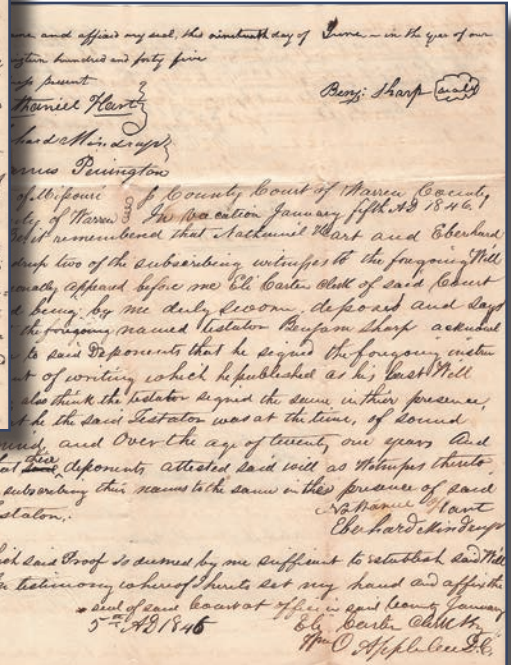 and affixed my seal, this nineteenth day of June in the year of our
hundred and forty five
present
Benj: Sharp (seal)
thaniel Hart
hard Mindrup
Penington
of Missouri County Court of Warren County
of Warren In Vacation January fifth AD 1846.
it remembered that Nathaniel Hart and Eberhard
drup two of the subscribing witnesses to the foregoing Will
onally appeared before me Eli Carter Clerk of said Court
d being by me duly sworn, deposes and says
the foregoing named testator Benjam Sharp acknowl
to said Deponents that he signed the foregoing instru
t of writing which he published as his last Will
also think the testator signed the same in their presence,
t he the said Testator was at the time, of sound
and Over the age of twenty one years And
at these deponents attested said will as Witnesses thereto
subscribing their names to the same in the presence of said
estator.
Nathaniel Hart
Eberhard Mindrup
ich said Proof is deemed by me sufficient to establish said Will
In testimony whereof I hereto set my hand and affix the
seal of said Court at office in said County January
5th AD 1846
Eli Carter Clerk by
Wm O Applebee D.C.